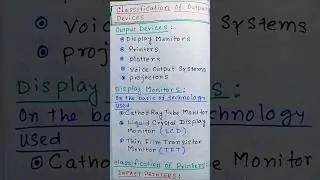 Classification Of Output
Devices
Output Devices:
Display Monitors
Printers
plotters
Voice Output Systems
projectors
Display Monitors:
On the basic of technology
used
Cathod Ray Tube Monitor
Liquid Crystal Display
Monitor (LCD)
Thin Film Transistor
Monitor (TFT)
Classification of Printers:
IMPACT PRINTERS:
voi
ystems
proj
Display
On the ba
ology
used
Catho
Monitor